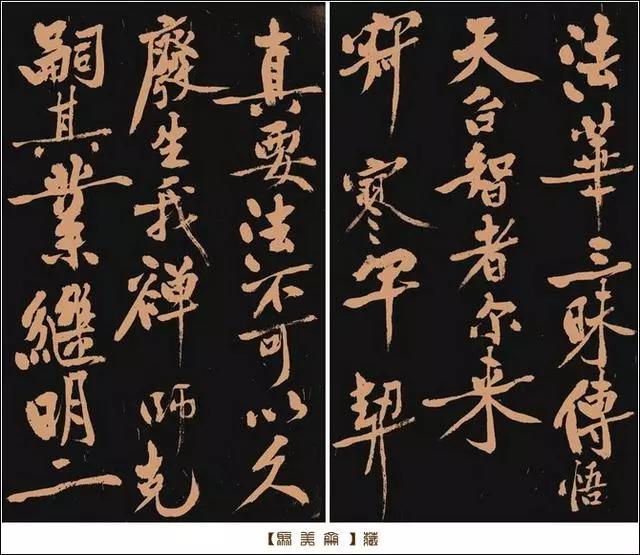 法華三昧傳悟
天台智者尔来
寂寥罕契
真要法不可以久
廢生我禪師克
嗣其業繼明二